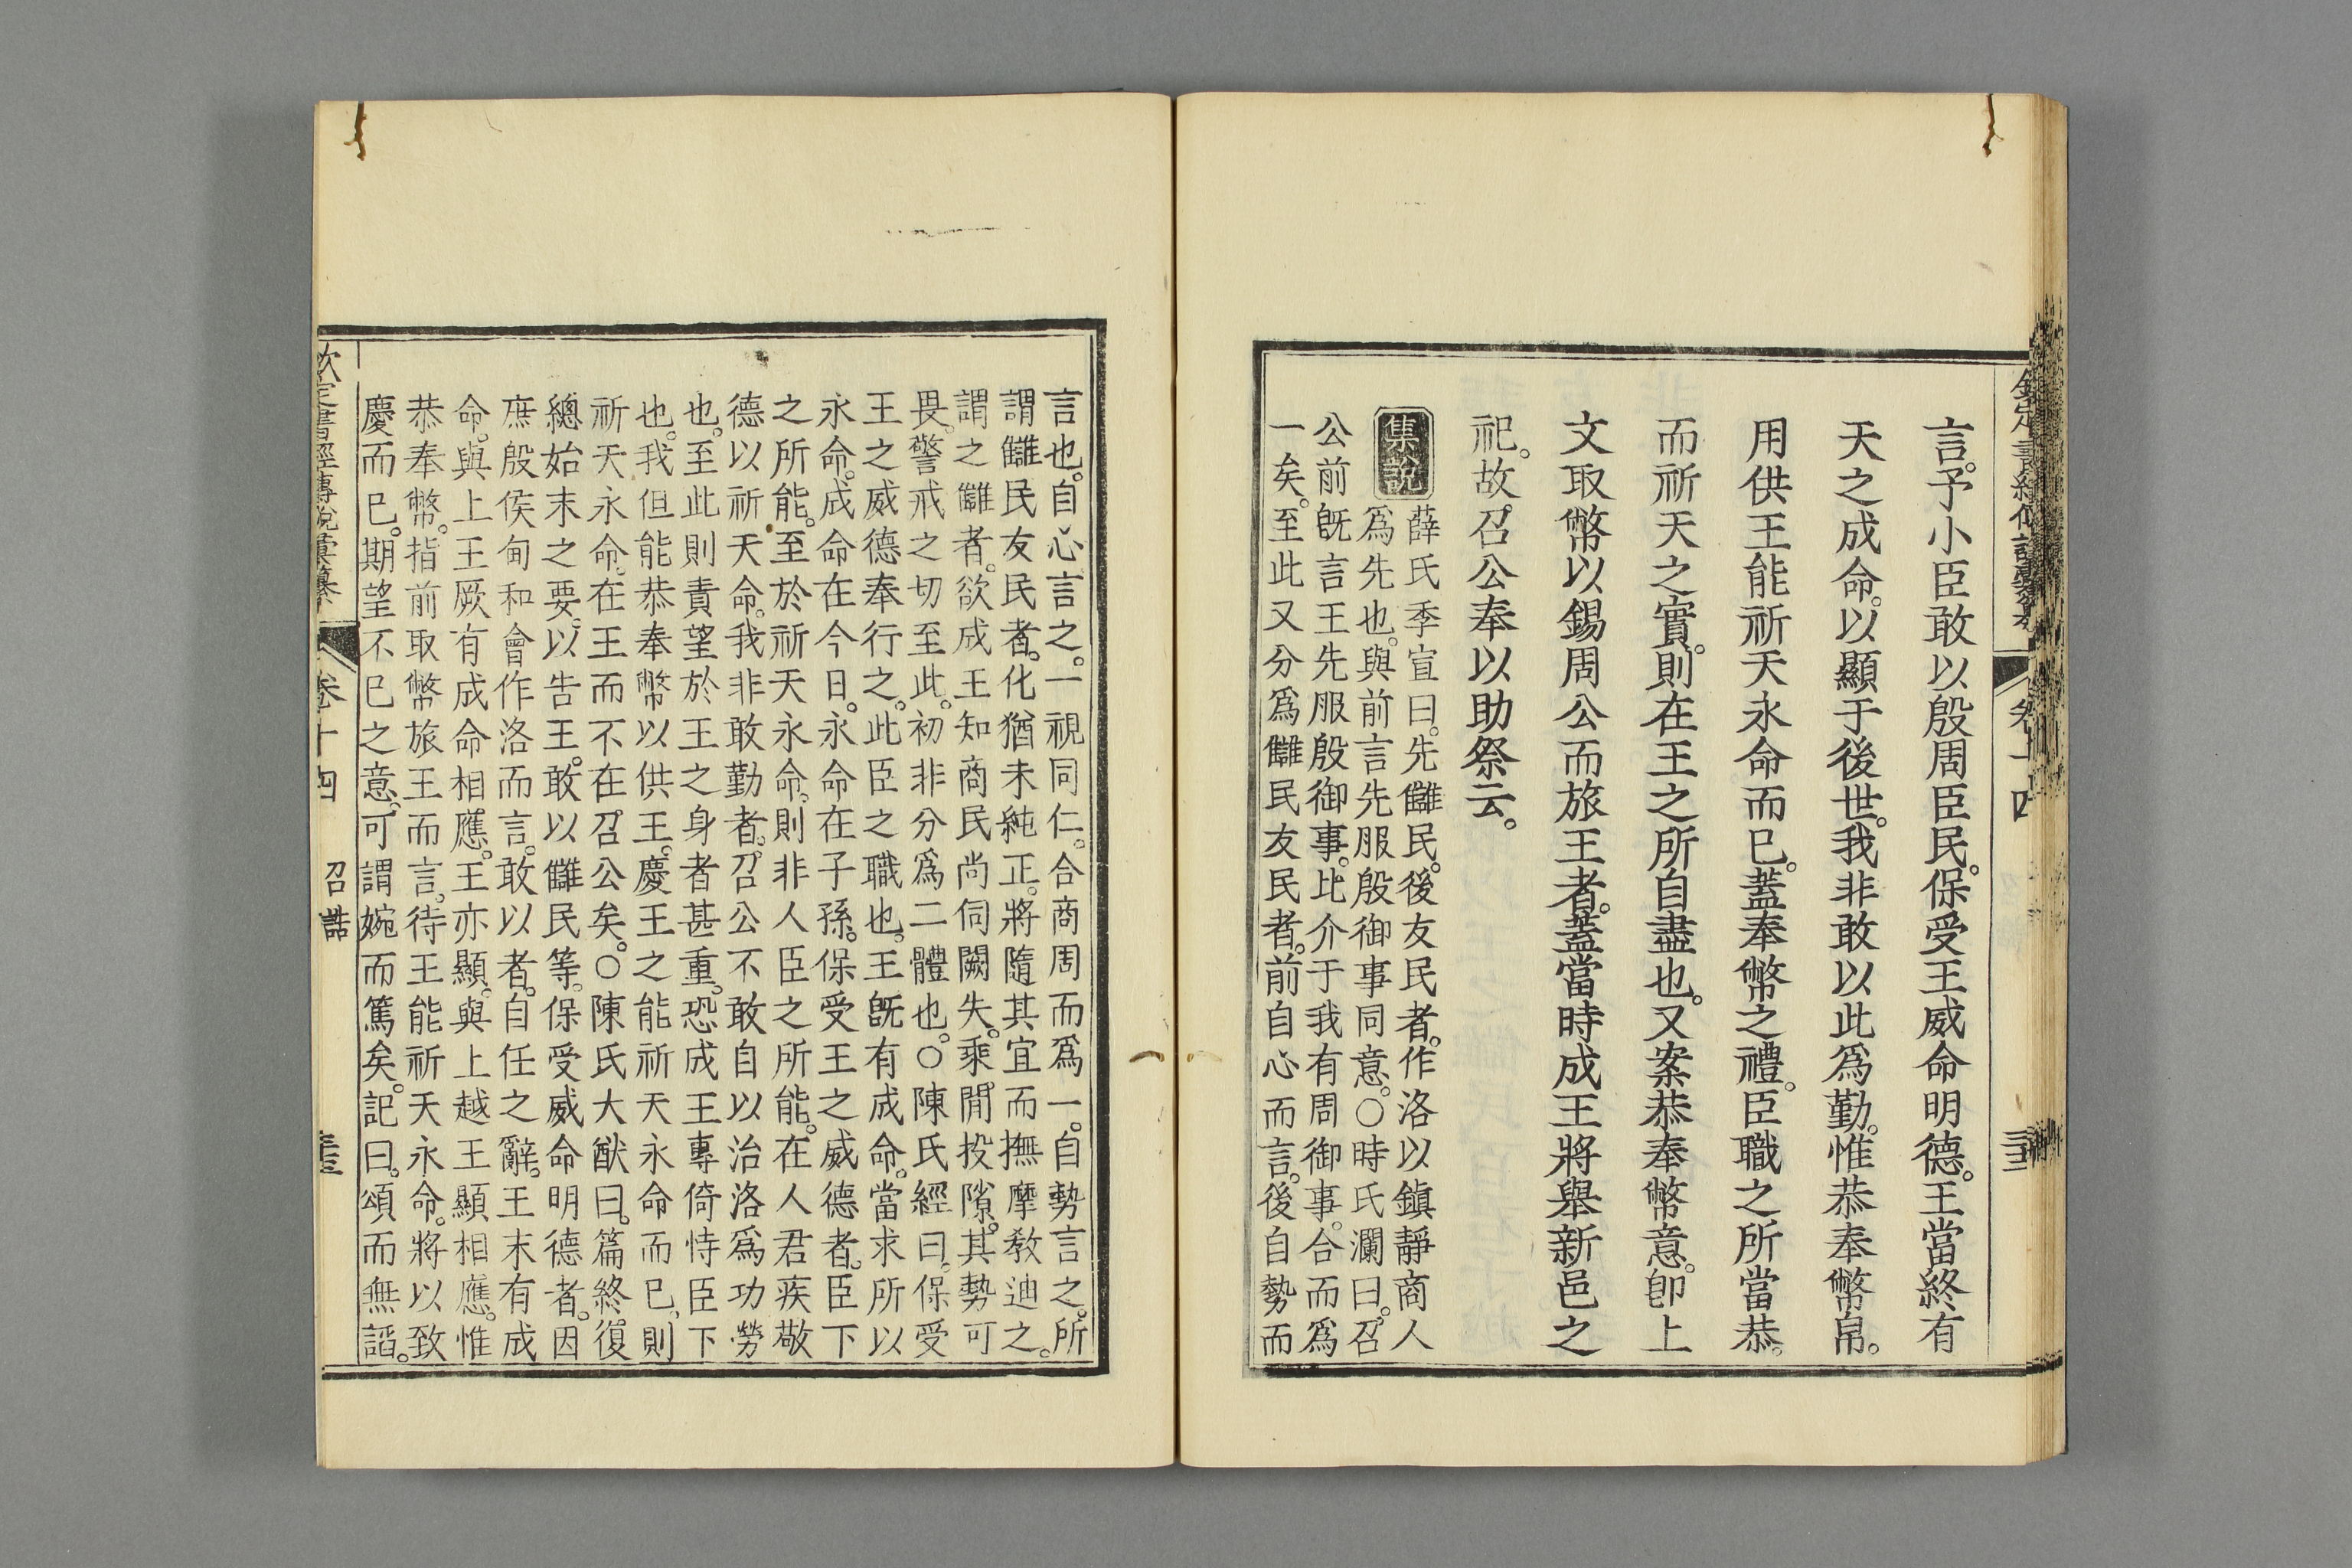 言。予小臣敢以殷周臣民。保受王威命明德。王當終有
天之成命。以顯于後世。我非敢以此爲勤。惟恭奉幣帛。
用供王能祈天永命而已。蓋奉幣之禮。臣職之所當恭。
而祈天之實。則在王之所自盡也。又案恭奉幣意。卽上
文取幣以錫周公而旅王者。蓋當時成王將舉新邑之
祀。故召公奉以助祭云。
集說
薛氏季宣曰。先讎民。後友民者。作洛以鎭靜商人
爲先也。與前言先服殷御事同意。○時氏瀾曰。召
公前旣言王先服殷御事。比介于我有周御事。合而爲
一矣。至此又分爲讎民友民者。前自心而言。後自勢而
言也。自心言之。一視同仁。合商周而爲一。自勢言之。所
謂讎民友民者。化猶未純正。將隨其宜而撫摩敎迪之。
謂之讎者。欲成王知商民尚伺闕失。乘閒投隙。其勢可
畏。警戒之切至此。初非分爲二體也。○陳氏經曰。保受
王之威德奉行之。此臣之職也。王旣有成命。當求所以
永命。成命在今日。永命在子孫。保受王之威德者。臣下
之所能。至於祈天永命。則非人臣之所能。在人君疾敬
德以祈天命。我非敢勤者。召公不敢自以治洛爲功勞
也。至此則責望於王之身者甚重。恐成王專倚恃臣下
也。我但能恭奉幣以供王。慶王之能祈天永命而已。則
祈天永命。在王而不在召公矣。○陳氏大猷曰。篇終。復
總始末之要。以告王。敢以讎民等。保受威命明德者。因
庶殷侯甸和會作洛而言。敢以者。自任之辭。王末有成
命。與上王厥有成命相應。王亦顯。與上越王顯相應。惟
恭奉幣。指前取幣旅王而言。待王能祈天永命。將以致
慶而已。期望不已之意。可謂婉而篤矣。記曰。頌而無諂。
欽定書經傳說彙纂
卷十四
召誥